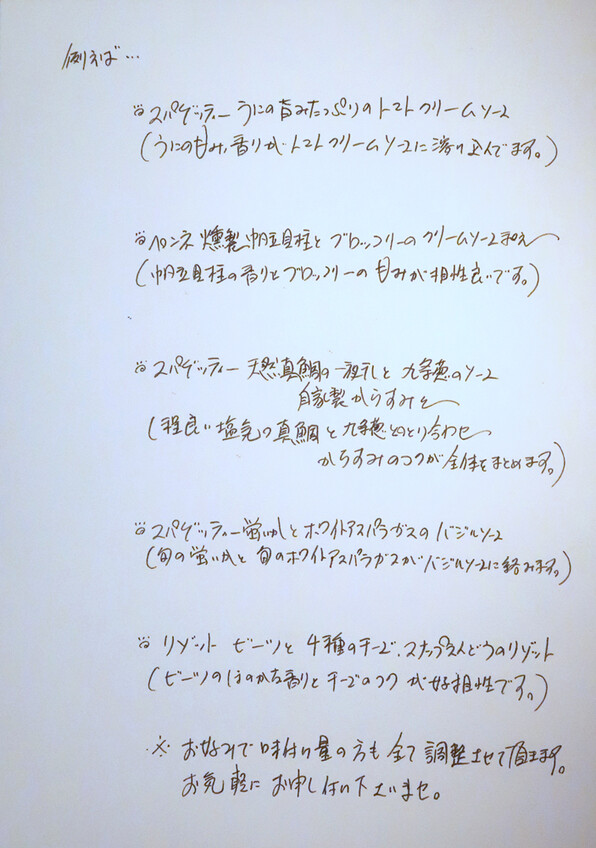 例えば…
スパゲッティー うにの旨みたっぷりのトマトクリームソース
(うにの甘み、香りが トマトクリームソースに溶け込んでます。)
ペンネ 燻製帆立貝柱と ブロッコリーの クリームソース和え
(帆立貝柱の香りとブロッコリーの甘みが相性良いです。)
スパゲッティー 天然真鯛の一夜干しと 九条葱のソース
自家製からすみを
(程良い塩気の真鯛と九条葱とのとり合わせ
からすみのコクが全体をまとめます。)
スパゲッティー 蛍いかとホワイトアスパラガスのバジルソース
(旬の蛍いかと旬のホワイトアスパラガスがバジルソースに絡みます。)
リゾット ビーツと 4種のチーズ、スナップえんどうのリゾット
(ビーツのほのかな香りとチーズのコクが好相性です。)
※ お好みで味付け量の方も全て調整させて頂きます。
お気軽にお申し付け下さいませ。